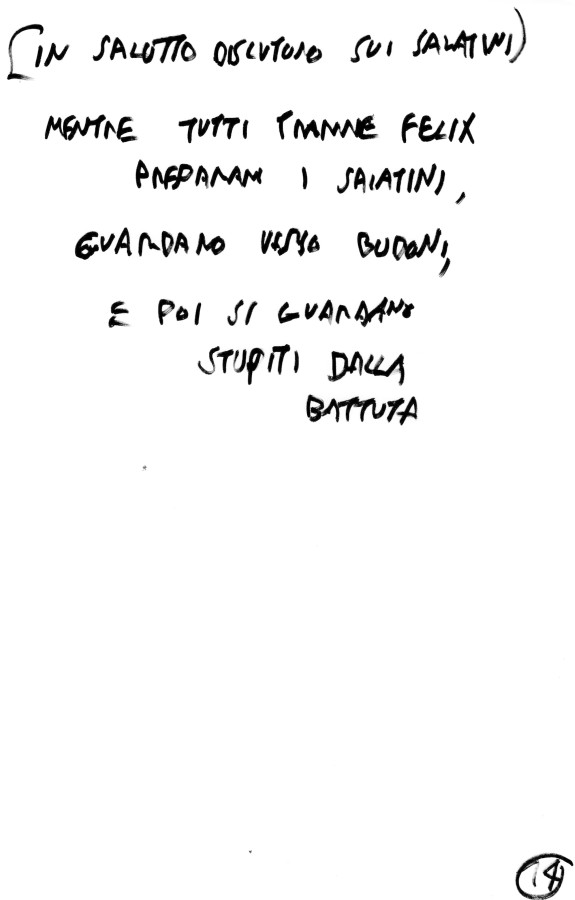 (IN SALOTTO DISCUTONO SUI SALATINI)
MENTRE TUTTI TRANNE FELIX
PREPARANO I SALATINI,
GUARDANO VERSO BUDONI,
E POI SI GUARDANO
STUPITI DALLA
BATTUTA
14